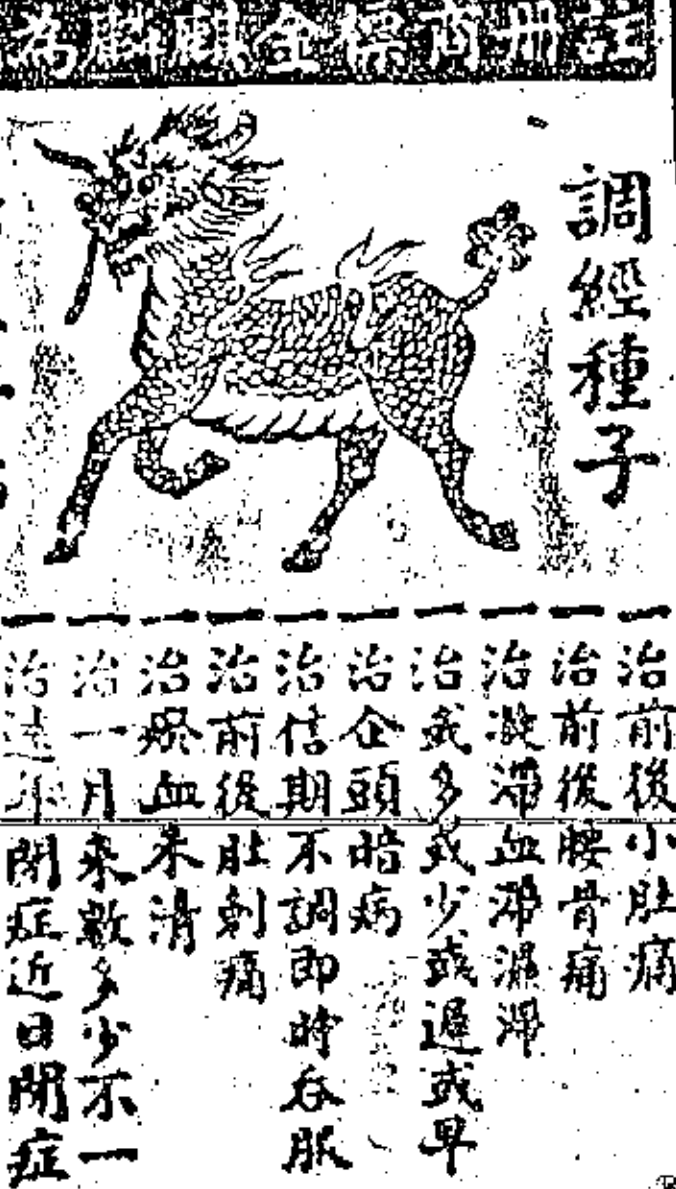 註冊商標金麒麟為
調經種子
一治前後小肚痛
一治前後腰骨痛
一治凝滯血滯濕滯
一治或多或少或遲或早
一治企頭暗病
一治信期不調即時吞服
一治前後肚刺痛
一治瘀血未清
一治一月來數多少不一
一治遠年閉症近日閉症